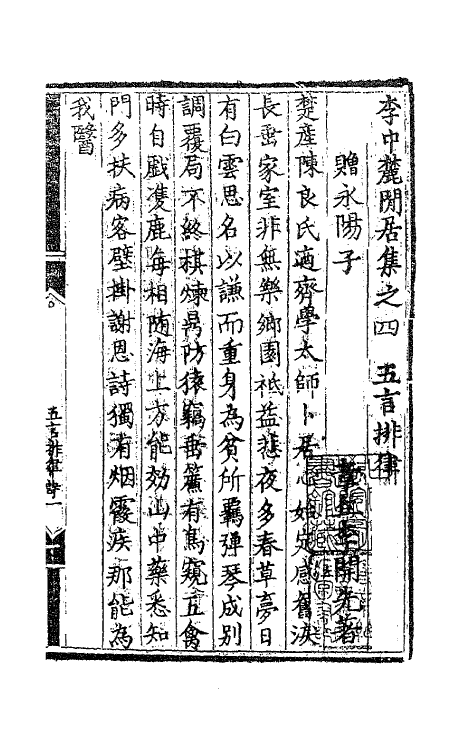 李中麓閒居集之四 五言排律
章丘李開先著
贈永陽子
楚產陳良氏適齊學太師卜居心始定感舊淚
長垂家室非無樂鄉園祗益悲夜多春草夢日
有白雲思名以謙而重身為貧所羈彈琴成別
調覆局不終棋煉防猿竊垂簾有鳥窺五禽
時自戲隻鹿每相隨海上方能効山中藥悉知
門多扶病客壁掛謝恩詩獨有烟霞疾那能為
我醫
五言排律 一